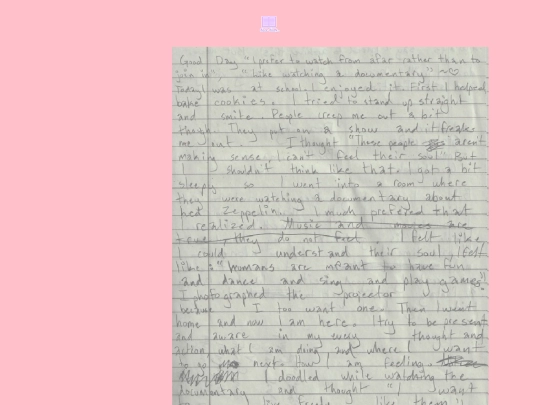 Good Day "I prefer to watch from afar rather than to
join in" "Like watching a documentary" ~♡
Today was at school. I enjoyed it. First I helped
bake cookies. I tried to stand up straight
and smile. People creep me out a bit
though. They put on a show and it freaks
me out. I thought "These people aren't
making sense, I can't feel their soul" But
I shouldn't think like that. I got a bit
sleepy so I went into a room where
they were watching a documentary about
Led Zeppelin. I much preferred that
I realized. Music and are
they do not feel I felt like
I could understand their soul. I felt
like "humans are meant to have fun
and dance and sing and play games".
I photographed the projector
because I too want one. Then I went
home and now I am here. I try to be present
and aware in my every thought and
action what I am doing and where I want
to go next. How I am feeling.
I doodled while watching the
documentary and thought "I want
live like them"